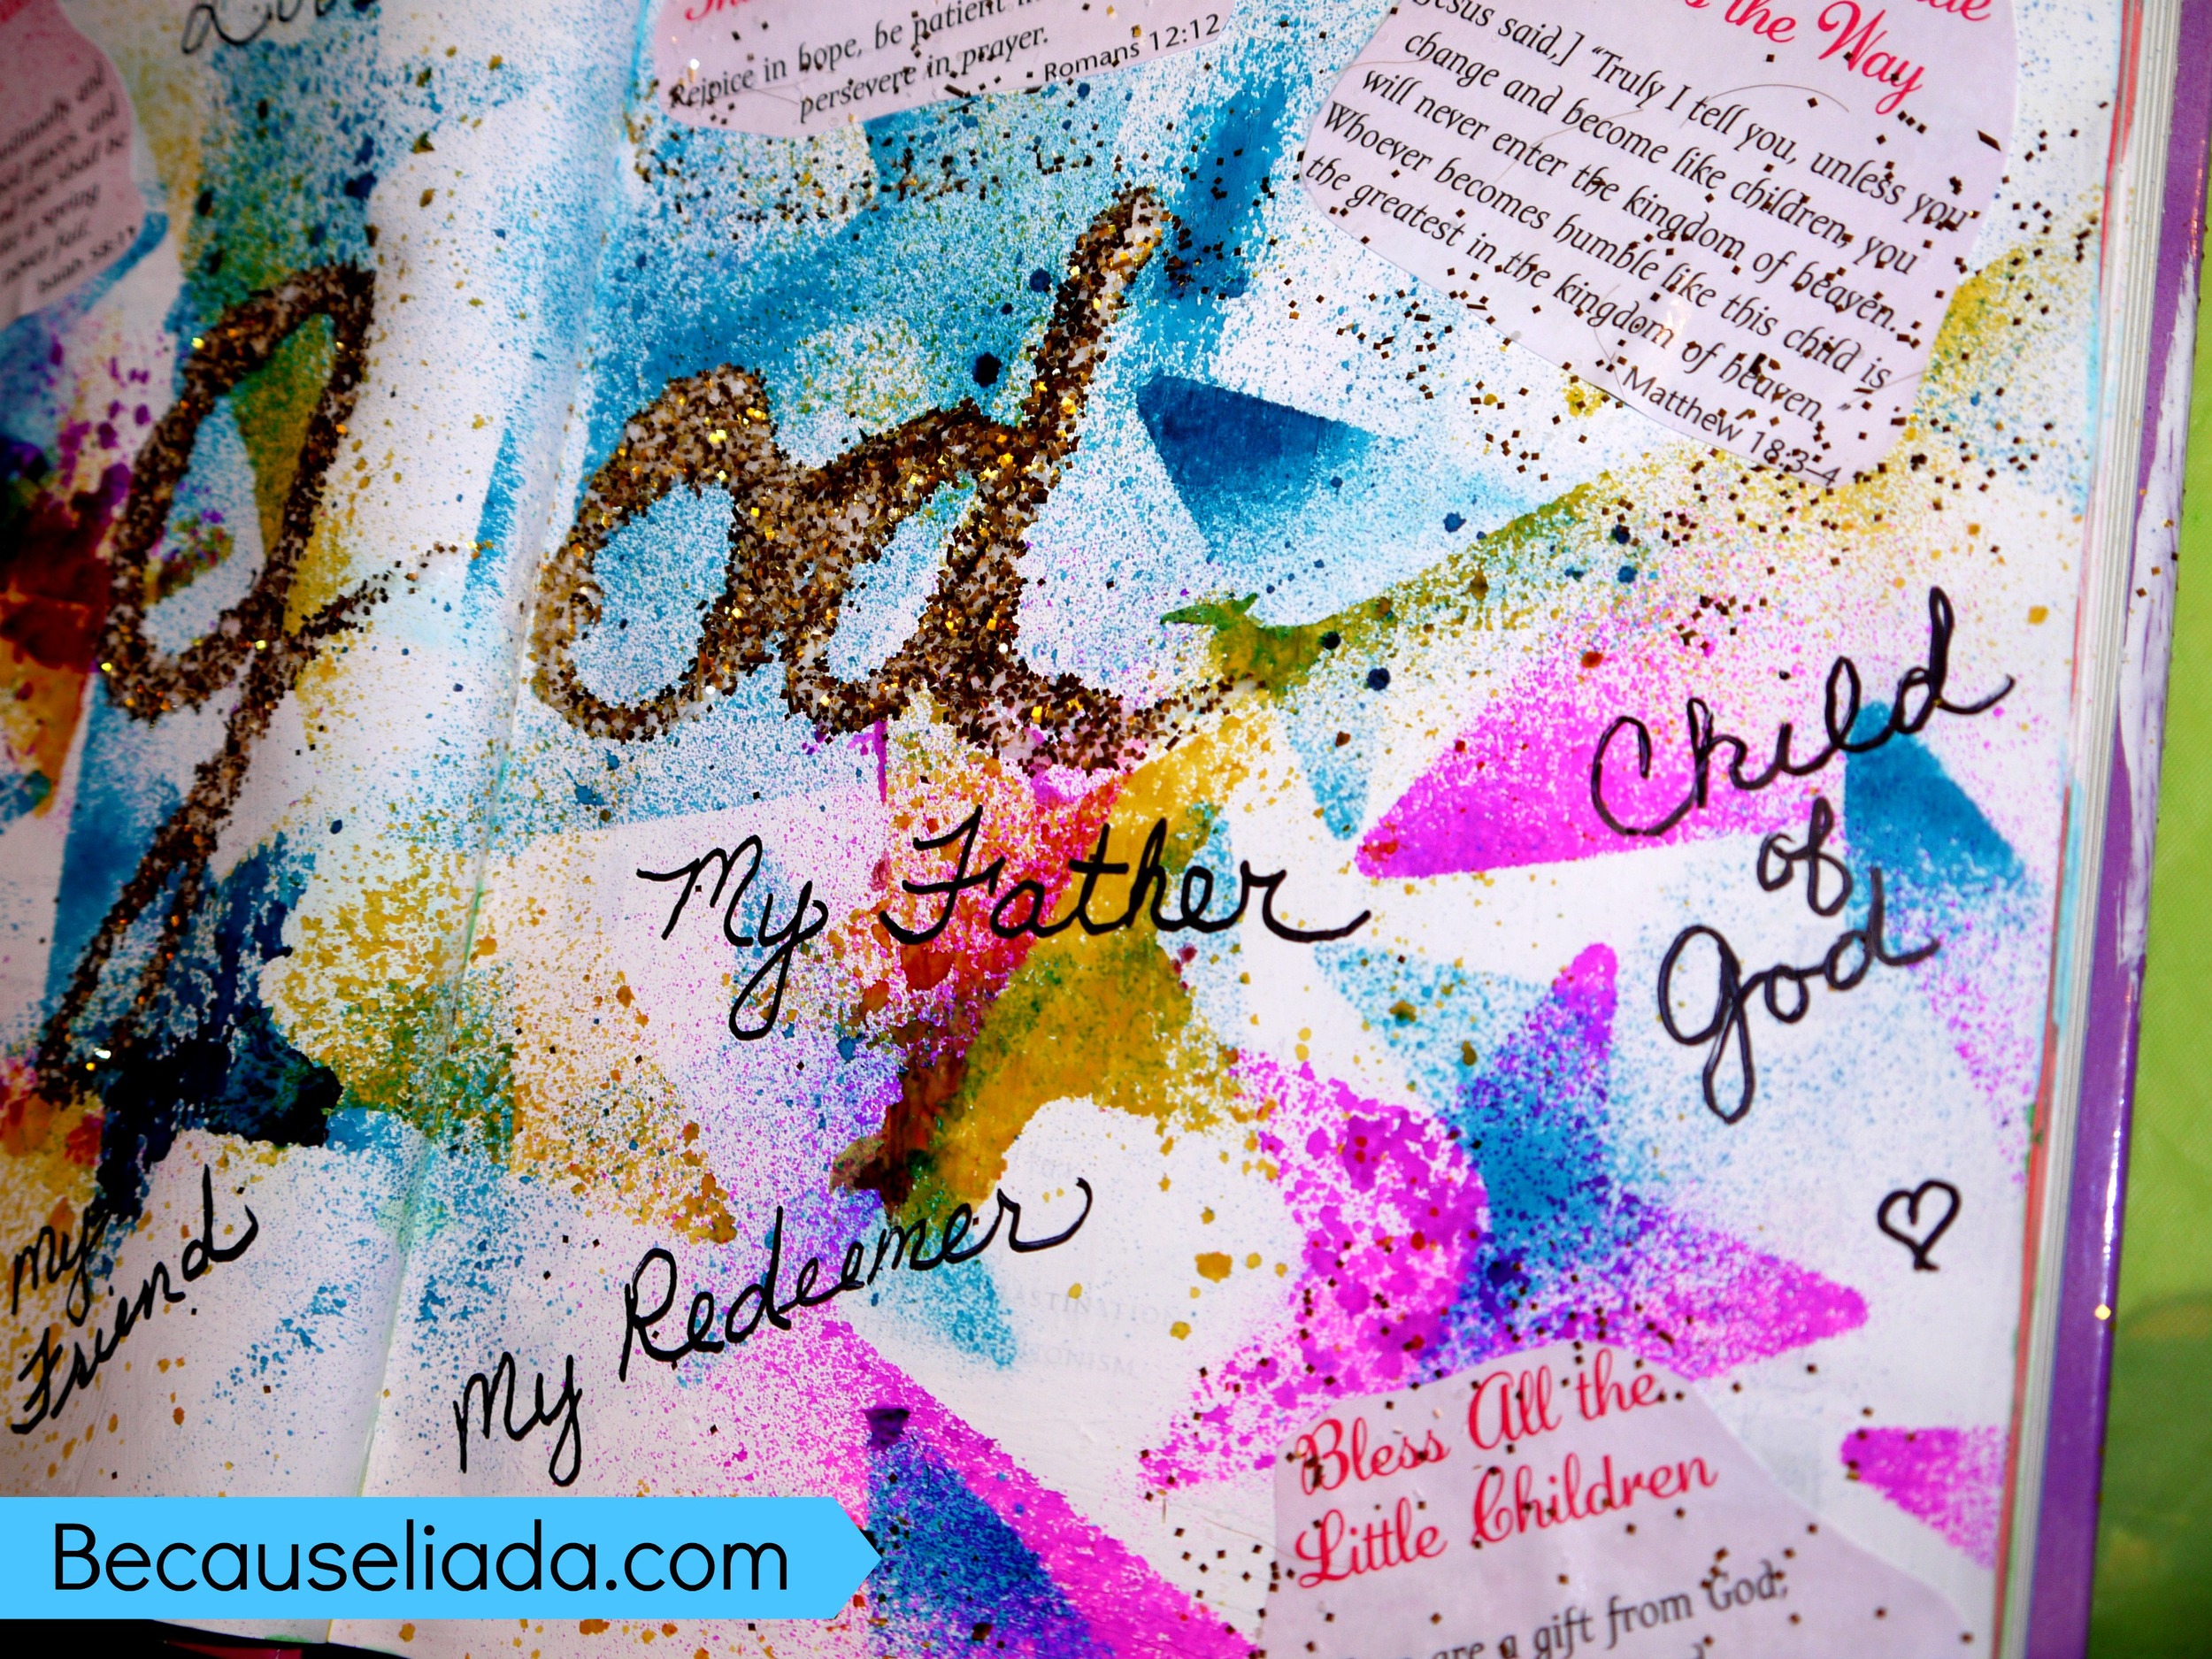 Rejoice in hope, be patient in
persevere in prayer.
Romans 12:12
the Way
Jesus said,] “Truly I tell you, unless you
change and become like children, you
will never enter the kingdom of heaven.
Whoever becomes humble like this child is
the greatest in the kingdom of heaven.”
Matthew 18:3–4
and
shall be
a spring
never fail.
Isaiah 58:11
god
My Father
Child
of
God
My
Friend
My Redeemer
Bless All the
Little Children
are a gift from God;
Becauseliada.com